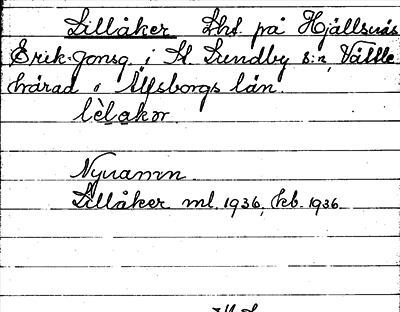 Lillåker Lht. på Hjällsnäs
Erik-Jonsg. i St. Lundby s:n, Vättle
härad i Älfsborgs län.
lèlakər
Nynamn.
Lillåker ml. 1936, kb. 1936